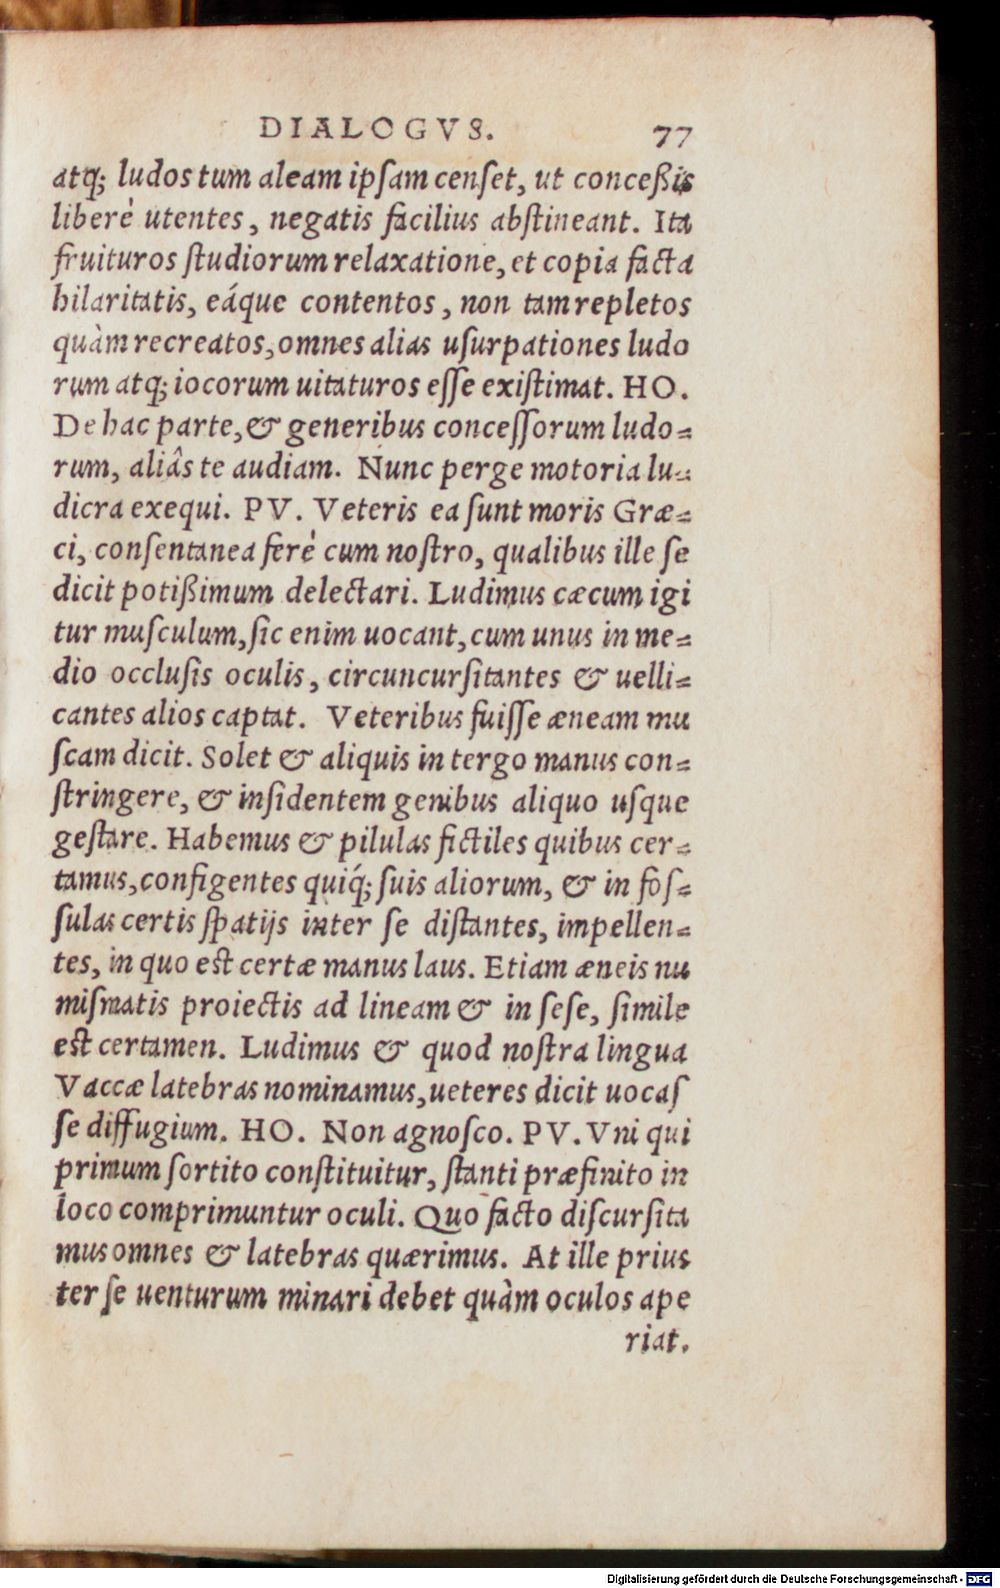 DIALOGVS. 77
atq́; ludos tum aleam ipſam cenſet, ut conceßis
liberè utentes, negatis facilius abſtineant. Ita
fruituros ſtudiorum relaxatione, et copia facta
hilaritatis, eáque contentos, non tam repletos
quàm recreatos, omnes alias uſurpationes ludo
rum atq́; iocorum uitaturos eſſe exiſtimat. HO.
De hac parte, & generibus conceſſorum ludo=
rum, aliâs te audiam. Nunc perge motoria lu=
dicra exequi. PV. Veteris ea ſunt moris Græ=
ci, conſentanea ferè cum noſtro, qualibus ille ſe
dicit potißimum delectari. Ludimus cæcum igi
tur muſculum, ſic enim uocant, cum unus in me=
dio occluſis oculis, circuncurſitantes & uelli=
cantes alios captat. Veteribus fuiſſe æneam mu
ſcam dicit. Solet & aliquis in tergo manus con=
ſtringere, & inſidentem genibus aliquo uſque
geſtare. Habemus & pilulas fictiles quibus cer=
tamus, configentes quiq́; ſuis aliorum, & in foſ=
ſulas certis ſpatijs inter ſe diſtantes, impellen=
tes, in quo est certæ manus laus. Etiam æneis nu
miſmatis proiectis ad lineam & in ſeſe, ſimile
est certamen. Ludimus & quod noſtra lingua
Vaccæ latebras nominamus, ueteres dicit uocaſ
ſe diffugium. HO. Non agnoſco. PV. Vni qui
primum ſortito conſtituitur, ſtanti præfinito in
loco comprimuntur oculi. Quo facto diſcurſita
mus omnes & latebras quærimus. At ille prius
ter ſe uenturum minari debet quàm oculos ape
riat.
Digitalisierung gefördert durch die Deutsche Forschungsgemeinschaft - DFG